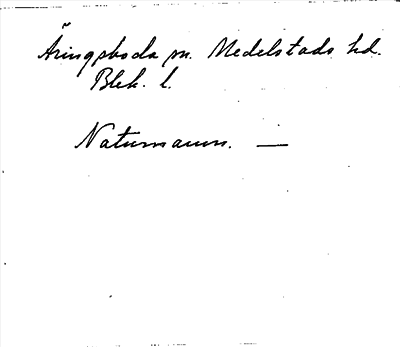 Äringsboda sn. Medelstads hd.
Blek. l.
Naturnamn. —